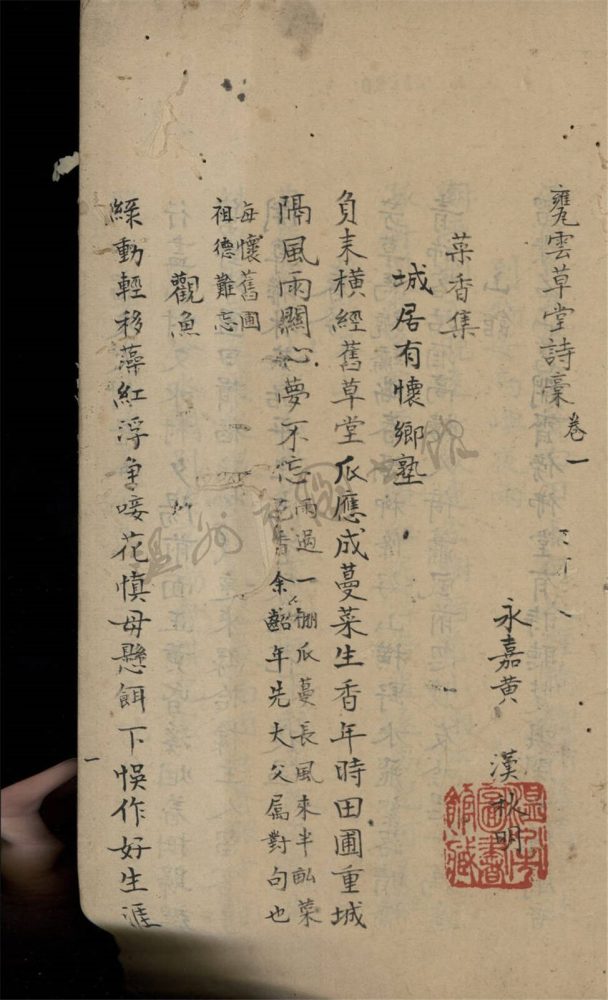 甕雲草堂詩稾卷一
永嘉黃 漢秋明
菜香集
城居有懷鄉塾
負耒橫經舊草堂瓜應成蔓菜生香年時田圃重城
隔風雨關心夢不忘雨過一棚瓜蔓長風來半畝菜
花香余齠年先大父属對句也
每懷舊圃
祖德難忘
觀魚
綠動輕移藻紅浮争唼花慎毋懸餌下悞作好生涯
一
溫州市圖書館藏